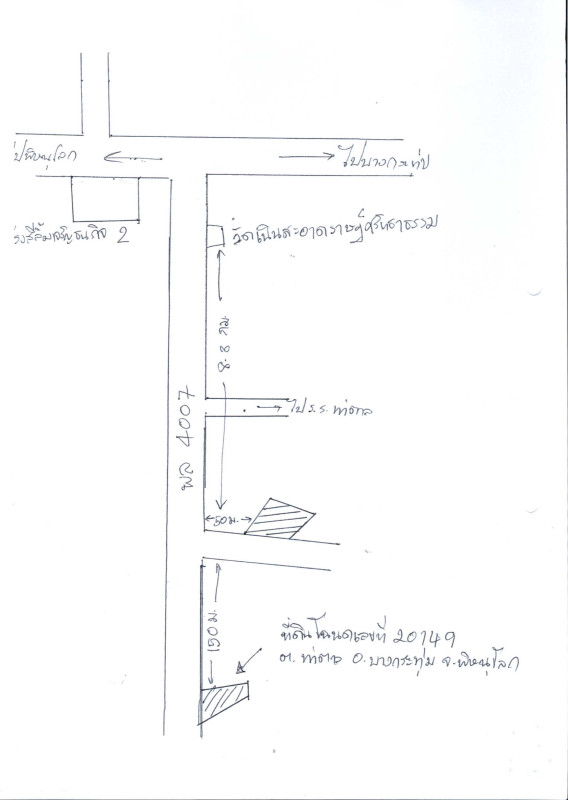 ไปพิษณุโลก
ไปบางกระทุ่ม
โรงสีสัมเจริญธนกิจ 2
วัดเนินสะอาดราษฎร์ศรัทธาธรรม
8.8 กม.
พล 4007
ไป ร.ร. ท่าตาล
50 ม.
150 ม.
ที่ดินโฉนดเลขที่ 20149
ต. ท่าตาล อ. บางกระทุ่ม จ. พิษณุโลก